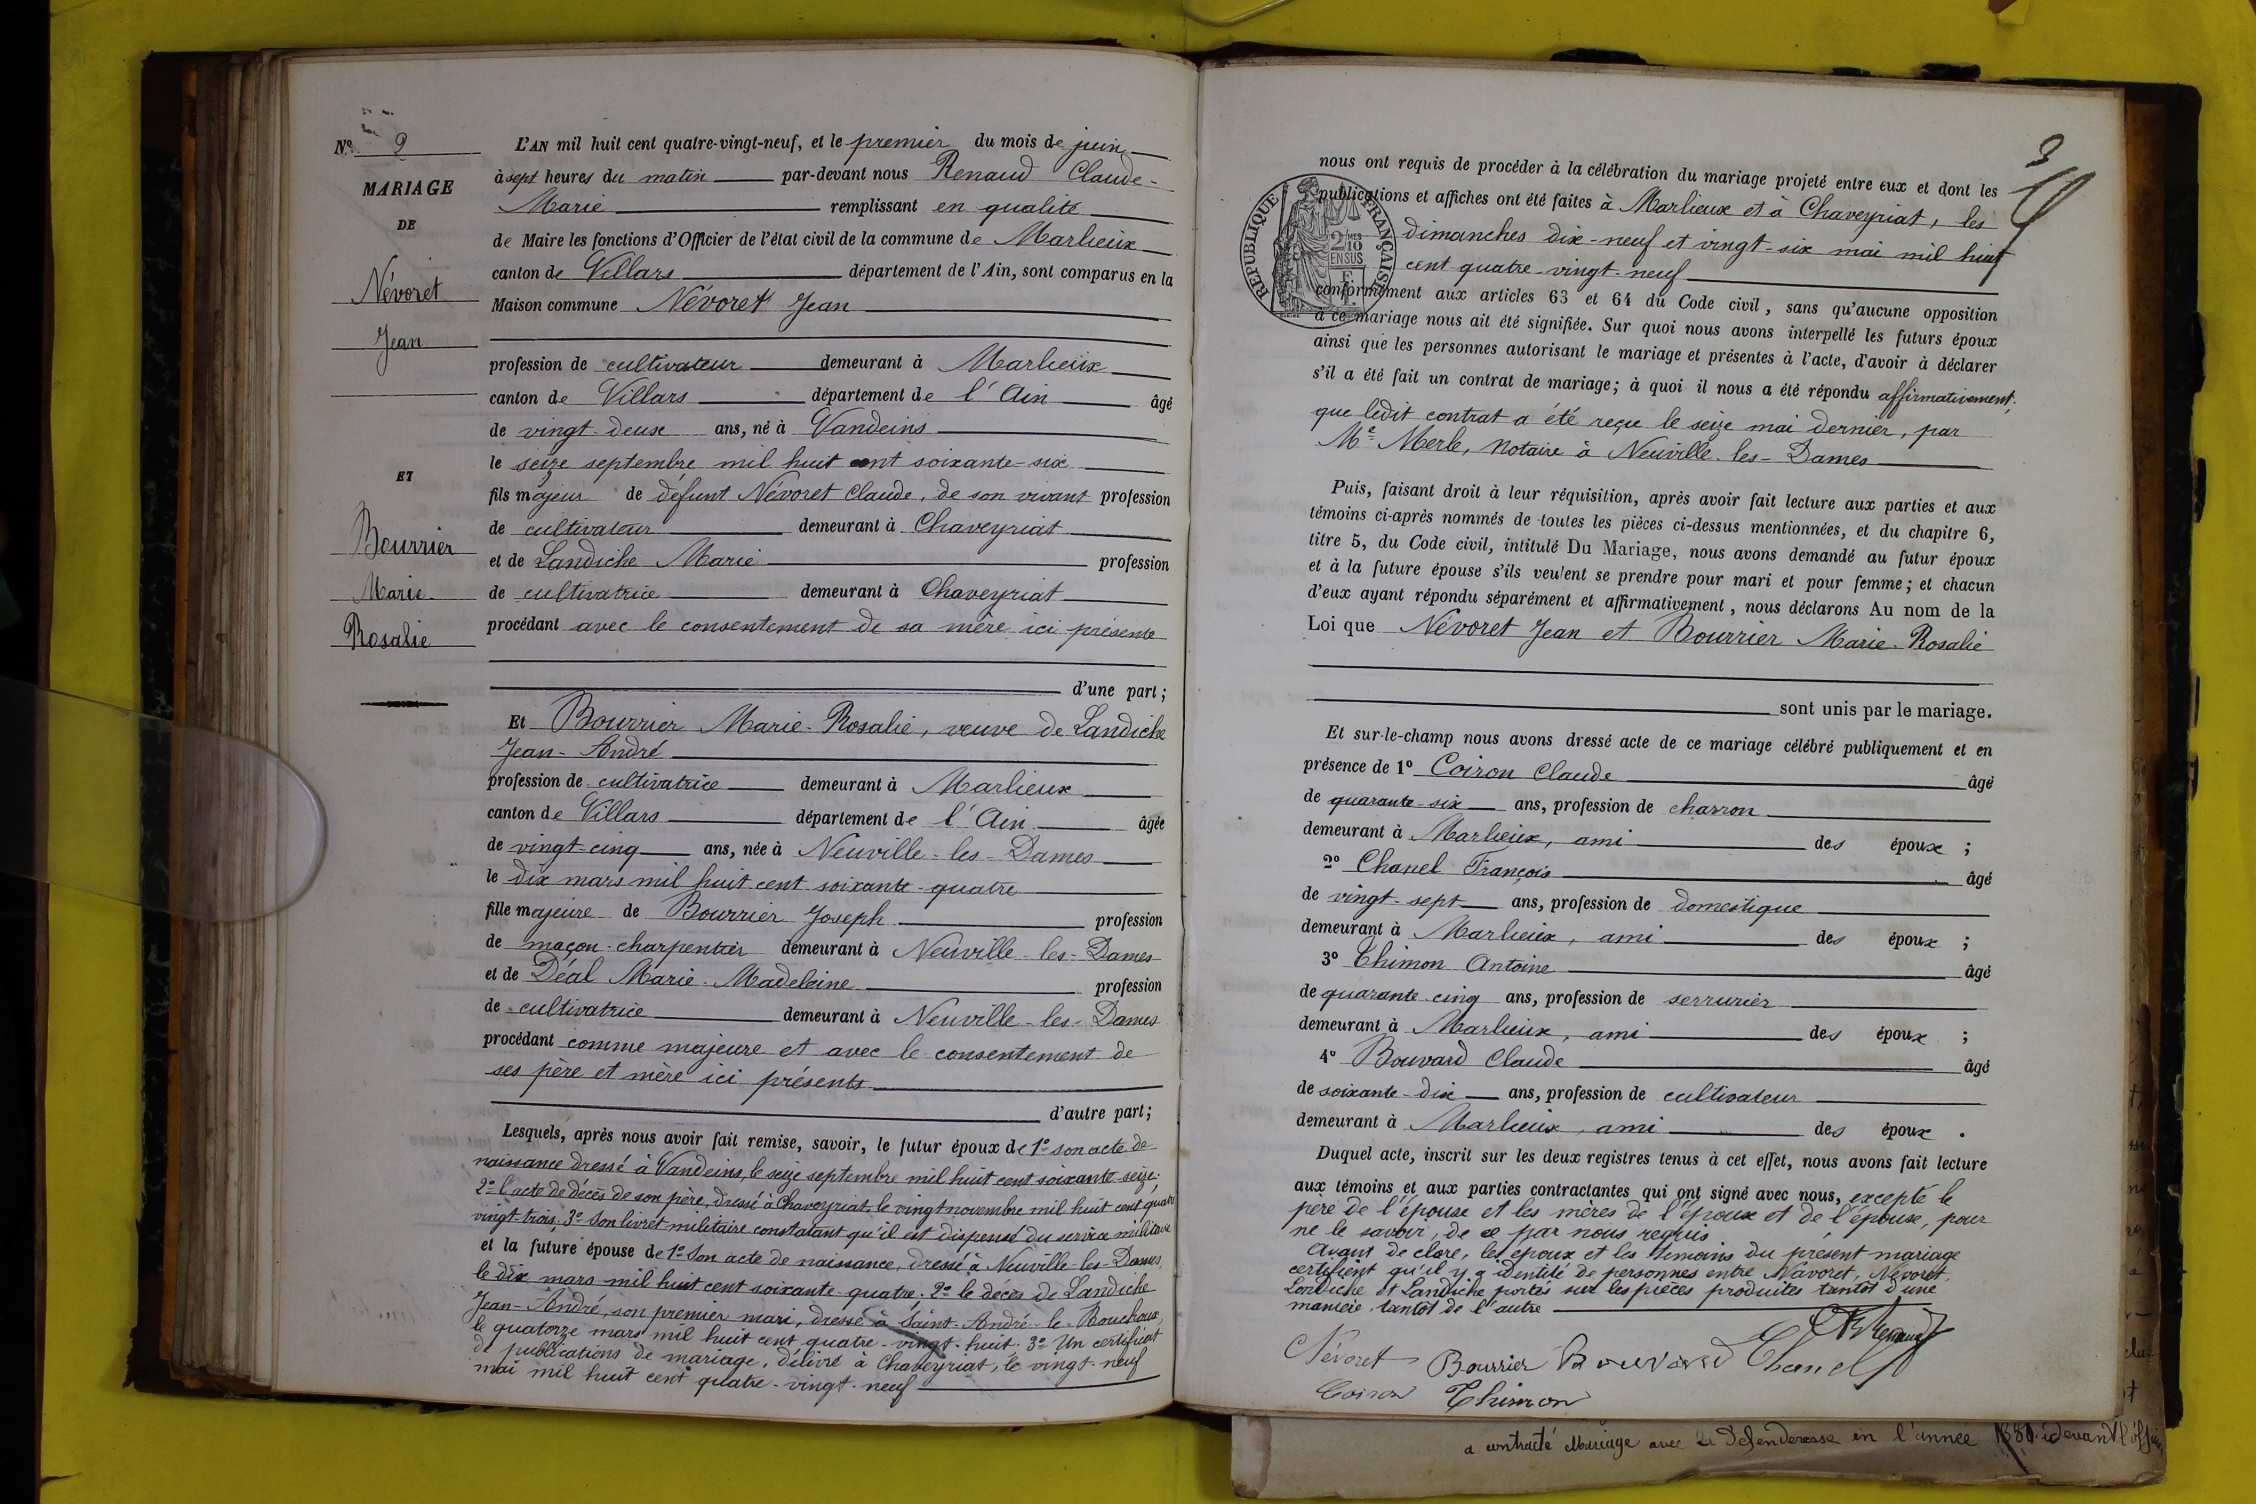 N° 9
MARIAGE
DE
Névoret
Jean
ET
Bourrier
Marie
Rosalie
L'AN mil huit cent quatre-vingt-neuf, et le premier du mois de juin
à sept heures du matin par-devant nous Renaud Claude-
Marie remplissant en qualité
de Maire les fonctions d'Officier de l'état civil de la commune de Marlieux
canton de Villars département de l'Ain, sont comparus en la
Maison commune Névoret Jean
profession de cultivateur demeurant à Marlieux
canton de Villars département de l'Ain âgé
de vingt-deux ans, né à Vandeins
le seize septembre mil huit cent soixante-six
fils majeur de défunt Névoret Claude, de son vivant profession
de cultivateur demeurant à Chaveyriat
et de Landiche Marie profession
de cultivatrice demeurant à Chaveyriat
procédant avec le consentement de sa mère ici présente
d'une part;
Et Bourrier Marie-Rosalie, veuve de Landiche
Jean-André
profession de cultivatrice demeurant à Marlieux
canton de Villars département de l'Ain âgée
de vingt-cinq ans, née à Neuville-les-Dames
le dix mars mil huit cent soixante-quatre
fille majeure de Bourrier Joseph profession
de maçon-charpentier demeurant à Neuville-les-Dames
et de Déal Marie-Madeleine profession
de cultivatrice demeurant à Neuville-les-Dames
procédant comme majeure et avec le consentement de
ses père et mère ici présents
d'autre part;
Lesquels, après nous avoir fait remise, savoir, le futur époux de 1° son acte de
naissance dressé à Vandeins, le seize septembre mil huit cent soixante-seize;
2° l'acte de décès de son père, dressé à Chaveyriat, le vingt novembre mil huit cent quatre
vingt-trois. 3° Son livret militaire constatant qu'il est dispensé du service militaire
et la future épouse de 1° Son acte de naissance, dressé à Neuville-les-Dames,
le dix mars mil huit cent soixante-quatre. 2° le décès de Landiche
Jean-André, son premier mari, dressé à Saint-André-le-Bouchoux,
le quatorze mars mil huit cent quatre-vingt-huit. 3° Un certificat
de publications de mariage, délivré à Chaveyriat, le vingt-neuf
mai mil huit cent quatre-vingt-neuf
3
RÉPUBLIQUE FRANÇAISE
2/10
EN SUS
nous ont requis de procéder à la célébration du mariage projeté entre eux et dont les
publications et affiches ont été faites à Marlieux et à Chaveyriat, les
dimanches dix-neuf et vingt-six mai mil huit
cent quatre-vingt-neuf
conformément aux articles 63 et 64 du Code civil, sans qu'aucune opposition
à ce mariage nous ait été signifiée. Sur quoi nous avons interpellé les futurs époux
ainsi que les personnes autorisant le mariage et présentes à l'acte, d'avoir à déclarer
s'il a été fait un contrat de mariage; à quoi il nous a été répondu affirmativement;
que ledit contrat a été reçu le seize mai dernier, par
Me Merle, Notaire à Neuville-les-Dames
Puis, faisant droit à leur réquisition, après avoir fait lecture aux parties et aux
témoins ci-après nommés de toutes les pièces ci-dessus mentionnées, et du chapitre 6,
titre 5, du Code civil, intitulé Du Mariage, nous avons demandé au futur époux
et à la future épouse s'ils veulent se prendre pour mari et pour femme; et chacun
d'eux ayant répondu séparément et affirmativement, nous déclarons Au nom de la
Loi que Névoret Jean et Bourrier Marie-Rosalie
sont unis par le mariage.
Et sur-le-champ nous avons dressé acte de ce mariage célébré publiquement et en
présence de 1° Coiron Claude âgé
de quarante-six ans, profession de charron
demeurant à Marlieux, ami des époux;
2° Chanel François âgé
de vingt-sept ans, profession de domestique
demeurant à Marlieux, ami des époux;
3° Thimon Antoine âgé
de quarante-cinq ans, profession de serrurier
demeurant à Marlieux, ami des époux;
4° Bouvard Claude âgé
de soixante-dix ans, profession de cultivateur
demeurant à Marlieux, ami des époux.
Duquel acte, inscrit sur les deux registres tenus à cet effet, nous avons fait lecture
aux témoins et aux parties contractantes qui ont signé avec nous, excepté le
père de l'épouse et les mères de l'époux et de l'épouse, pour
ne le savoir, de ce par nous requis
Avant de clore, les époux et les témoins du présent mariage
certifient qu'il y a identité de personnes entre Navoret, Névoret,
Londiche et Landiche portés sur les pièces produites tantôt d'une
manière tantôt de l'autre
Renaud
Névoret Bourrier Bouvard Chanel
Coiron Thimon
a contracté Mariage avec la Défenderesse en l'année devant